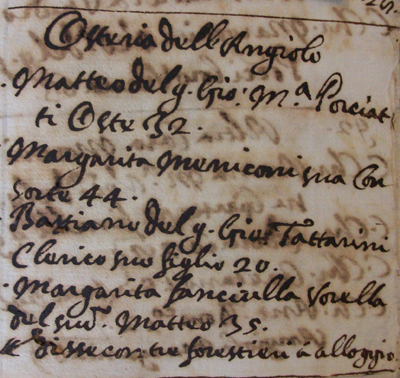 Osteria dell'Angiolo
Matteo del q. Gio: M.a Porciat-
ti Oste 32.
Margarita Meniconi sua Con
sorte 44.
Bastiano del q. Gio: Tattarini
Clerico suo figlio 20.
Margarita fanciulla Sorella
del sud.o Matteo 35.
disse con tre forestieri à alloggio.